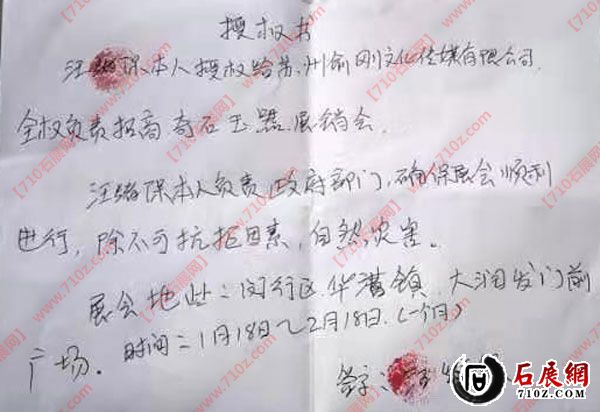 授权书
汪绪保本人授权给苏州俞刚文化传媒有限公司.
全权负责招商奇石玉器展销会.
汪绪保本人负责政府部门,确保展会顺利
进行,除不可抗拒因素,自然灾害。
展会地址:闵行区.华漕镇.大润发门前
广场. 时间:1月18日~2月18日.(一个月)
签字:
石展網
710z.com
【710石展网】
www.710z.com